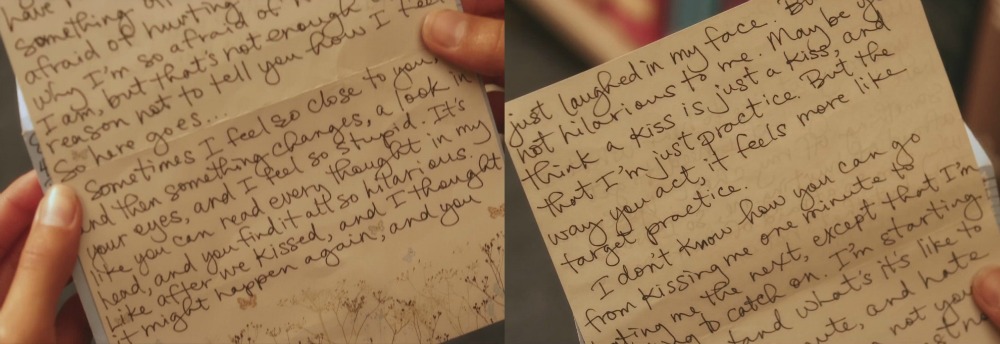 have
something
afraid of hurting
why I'm so afraid of
I am, but that's not enough
reason not to tell you how I feel
So here goes...
Sometimes I feel so close to you,
and then something changes, a look in
your eyes, and I feel so stupid. It's
like you can read every thought in my
head, and you find it all so hilarious.
Like after we kissed, and I thought
it might happen again, and you
just laughed in my face.
not hilarious to me. May be you
think a kiss is just a kiss, and
that I'm just practice. But the
way you act, it feels more like
target practice.
I don't know how you can go
from kissing me one minute to
hating me the next, except that I'm
to catch on. I'm starting
and what's it's like to
and hate
not you